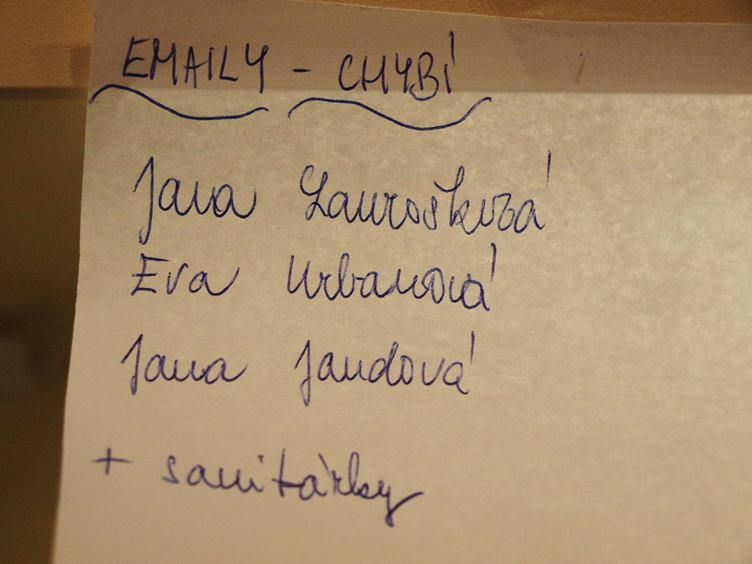 EMAILY - CHYBÍ
Jana
Eva Urbanová
Jana Jandová
+ sanitárky